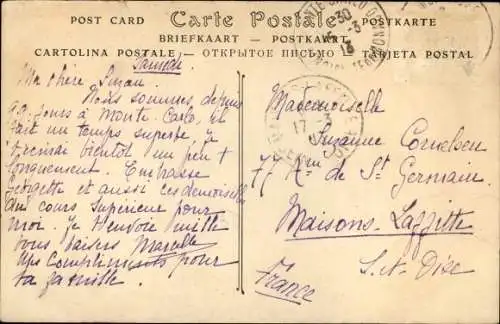 POST CARD Carte Postale POSTKARTE
BRIEFKAART - POSTKART
CARTOLINA POSTALE - ОТКРЫТОЕ ПИСЬМО - TARJETA POSTAL
Samedi
Ma chère Suzan.
Nous sommes depuis
qq. jours à Monte. Carlo, il
fait un temps superbe je
t'ecrirai bientot un peu +
longuement. Embrasse
Georgette et aussi ces demoiselles
du cours Supérieur pour
moi. Je t'envoie mille
bons baisers Marcelle
Mes compliments pour
ta famille
Mademoiselle
Suzanne Cornelsen
77 de St Germain
Maisons-Laffitte
S. et. Oise
France
30
-3
13
17 -3